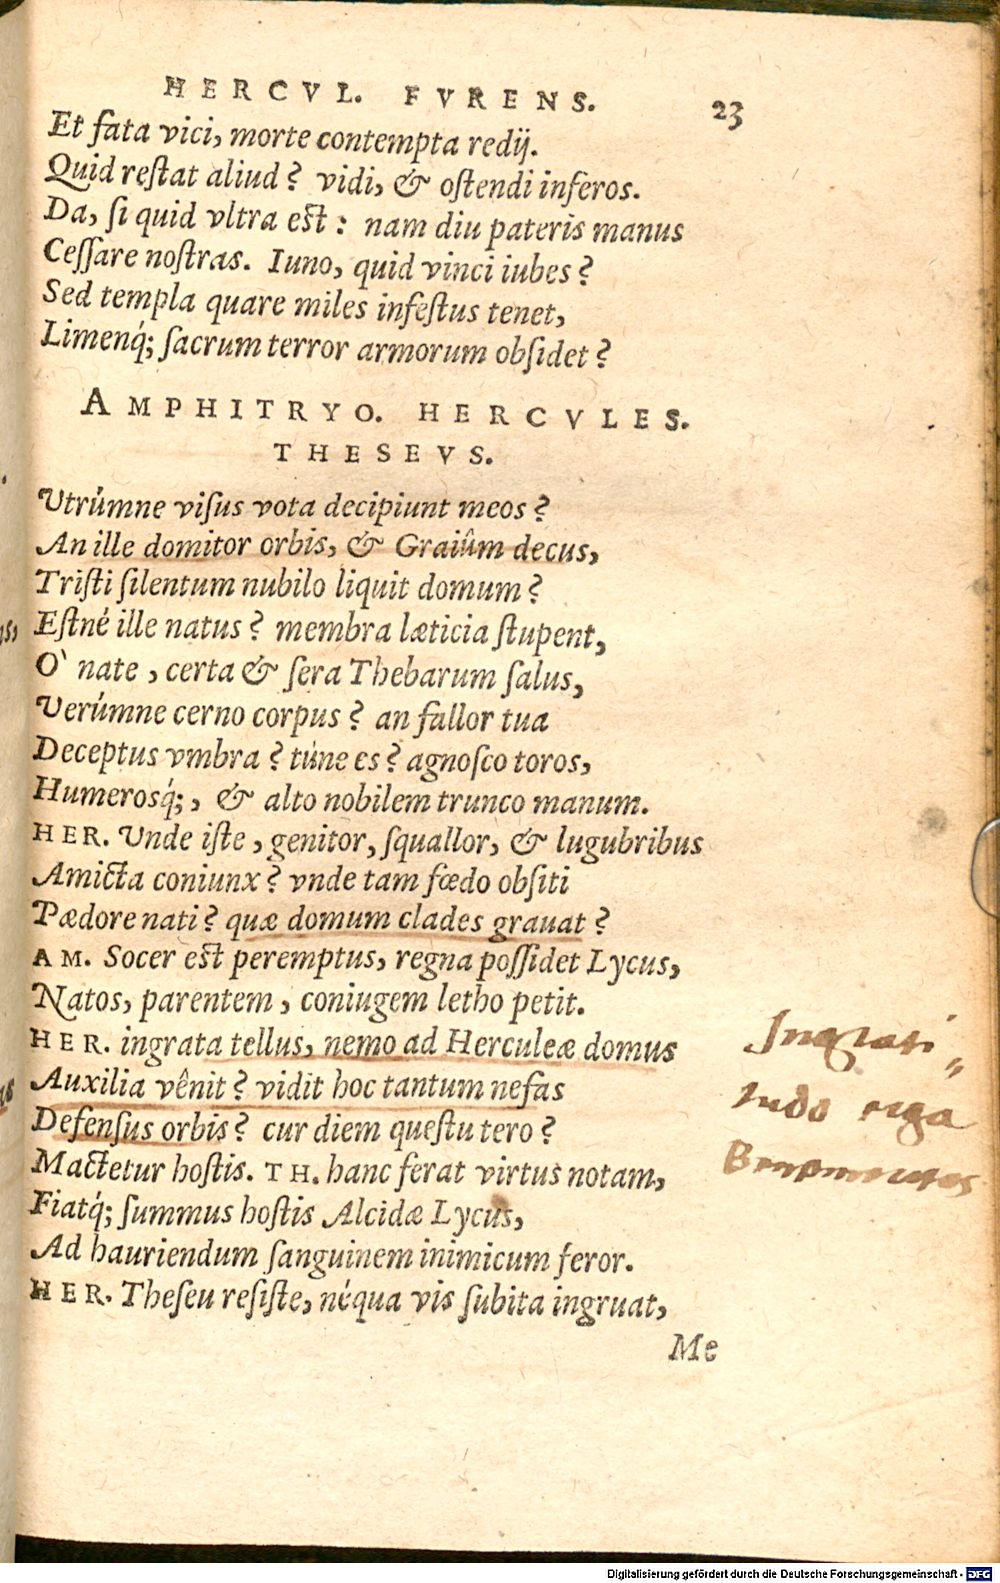 HERCVL. FVRENS. 23
Et fata vici, morte contempta redij.
Quid restat aliud? vidi, & ostendi inferos.
Da, si quid vltra est: nam diu pateris manus
Cessare nostras. Iuno, quid vinci iubes?
Sed templa quare miles infestus tenet,
Limenq́; sacrum terror armorum obsidet?
AMPHITRYO. HERCVLES.
THESEVS.
Vtrúmne visus vota decipiunt meos?
An ille domitor orbis, & Graiûm decus,
Tristi silentum nubilo liquit domum?
Estné ille natus? membra læticia stupent,
O` nate, certa & sera Thebarum salus,
Verúmne cerno corpus? an fallor tua
Deceptus vmbra? túne es? agnosco toros,
Humerosq́;, & alto nobilem trunco manum.
HER. Vnde iste, genitor, squallor, & lugubribus
Amicta coniunx? vnde tam fœdo obsiti
Pædore nati? quæ domum clades grauat?
AM. Socer est peremptus, regna possidet Lycus,
Natos, parentem, coniugem letho petit.
HER. ingrata tellus, nemo ad Herculeæ domus
Auxilia vênit? vidit hoc tantum nefas
Defensus orbis? cur diem questu tero?
Mactetur hostis. TH. hanc ferat virtus notam,
Fiatq́; summus hostis Alcidæ Lycus,
Ad hauriendum sanguinem inimicum feror.
HER. Theseu resiste, néqua vis subita ingruat,
Me
Ingrati„
tudo erga
Digitalisierung gefördert durch die Deutsche Forschungsgemeinschaft - DFG